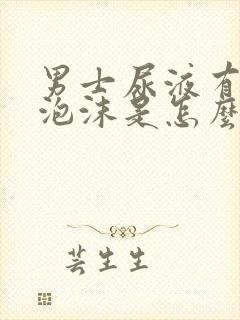 男士尿液有
泡沫是怎麼
芸生生